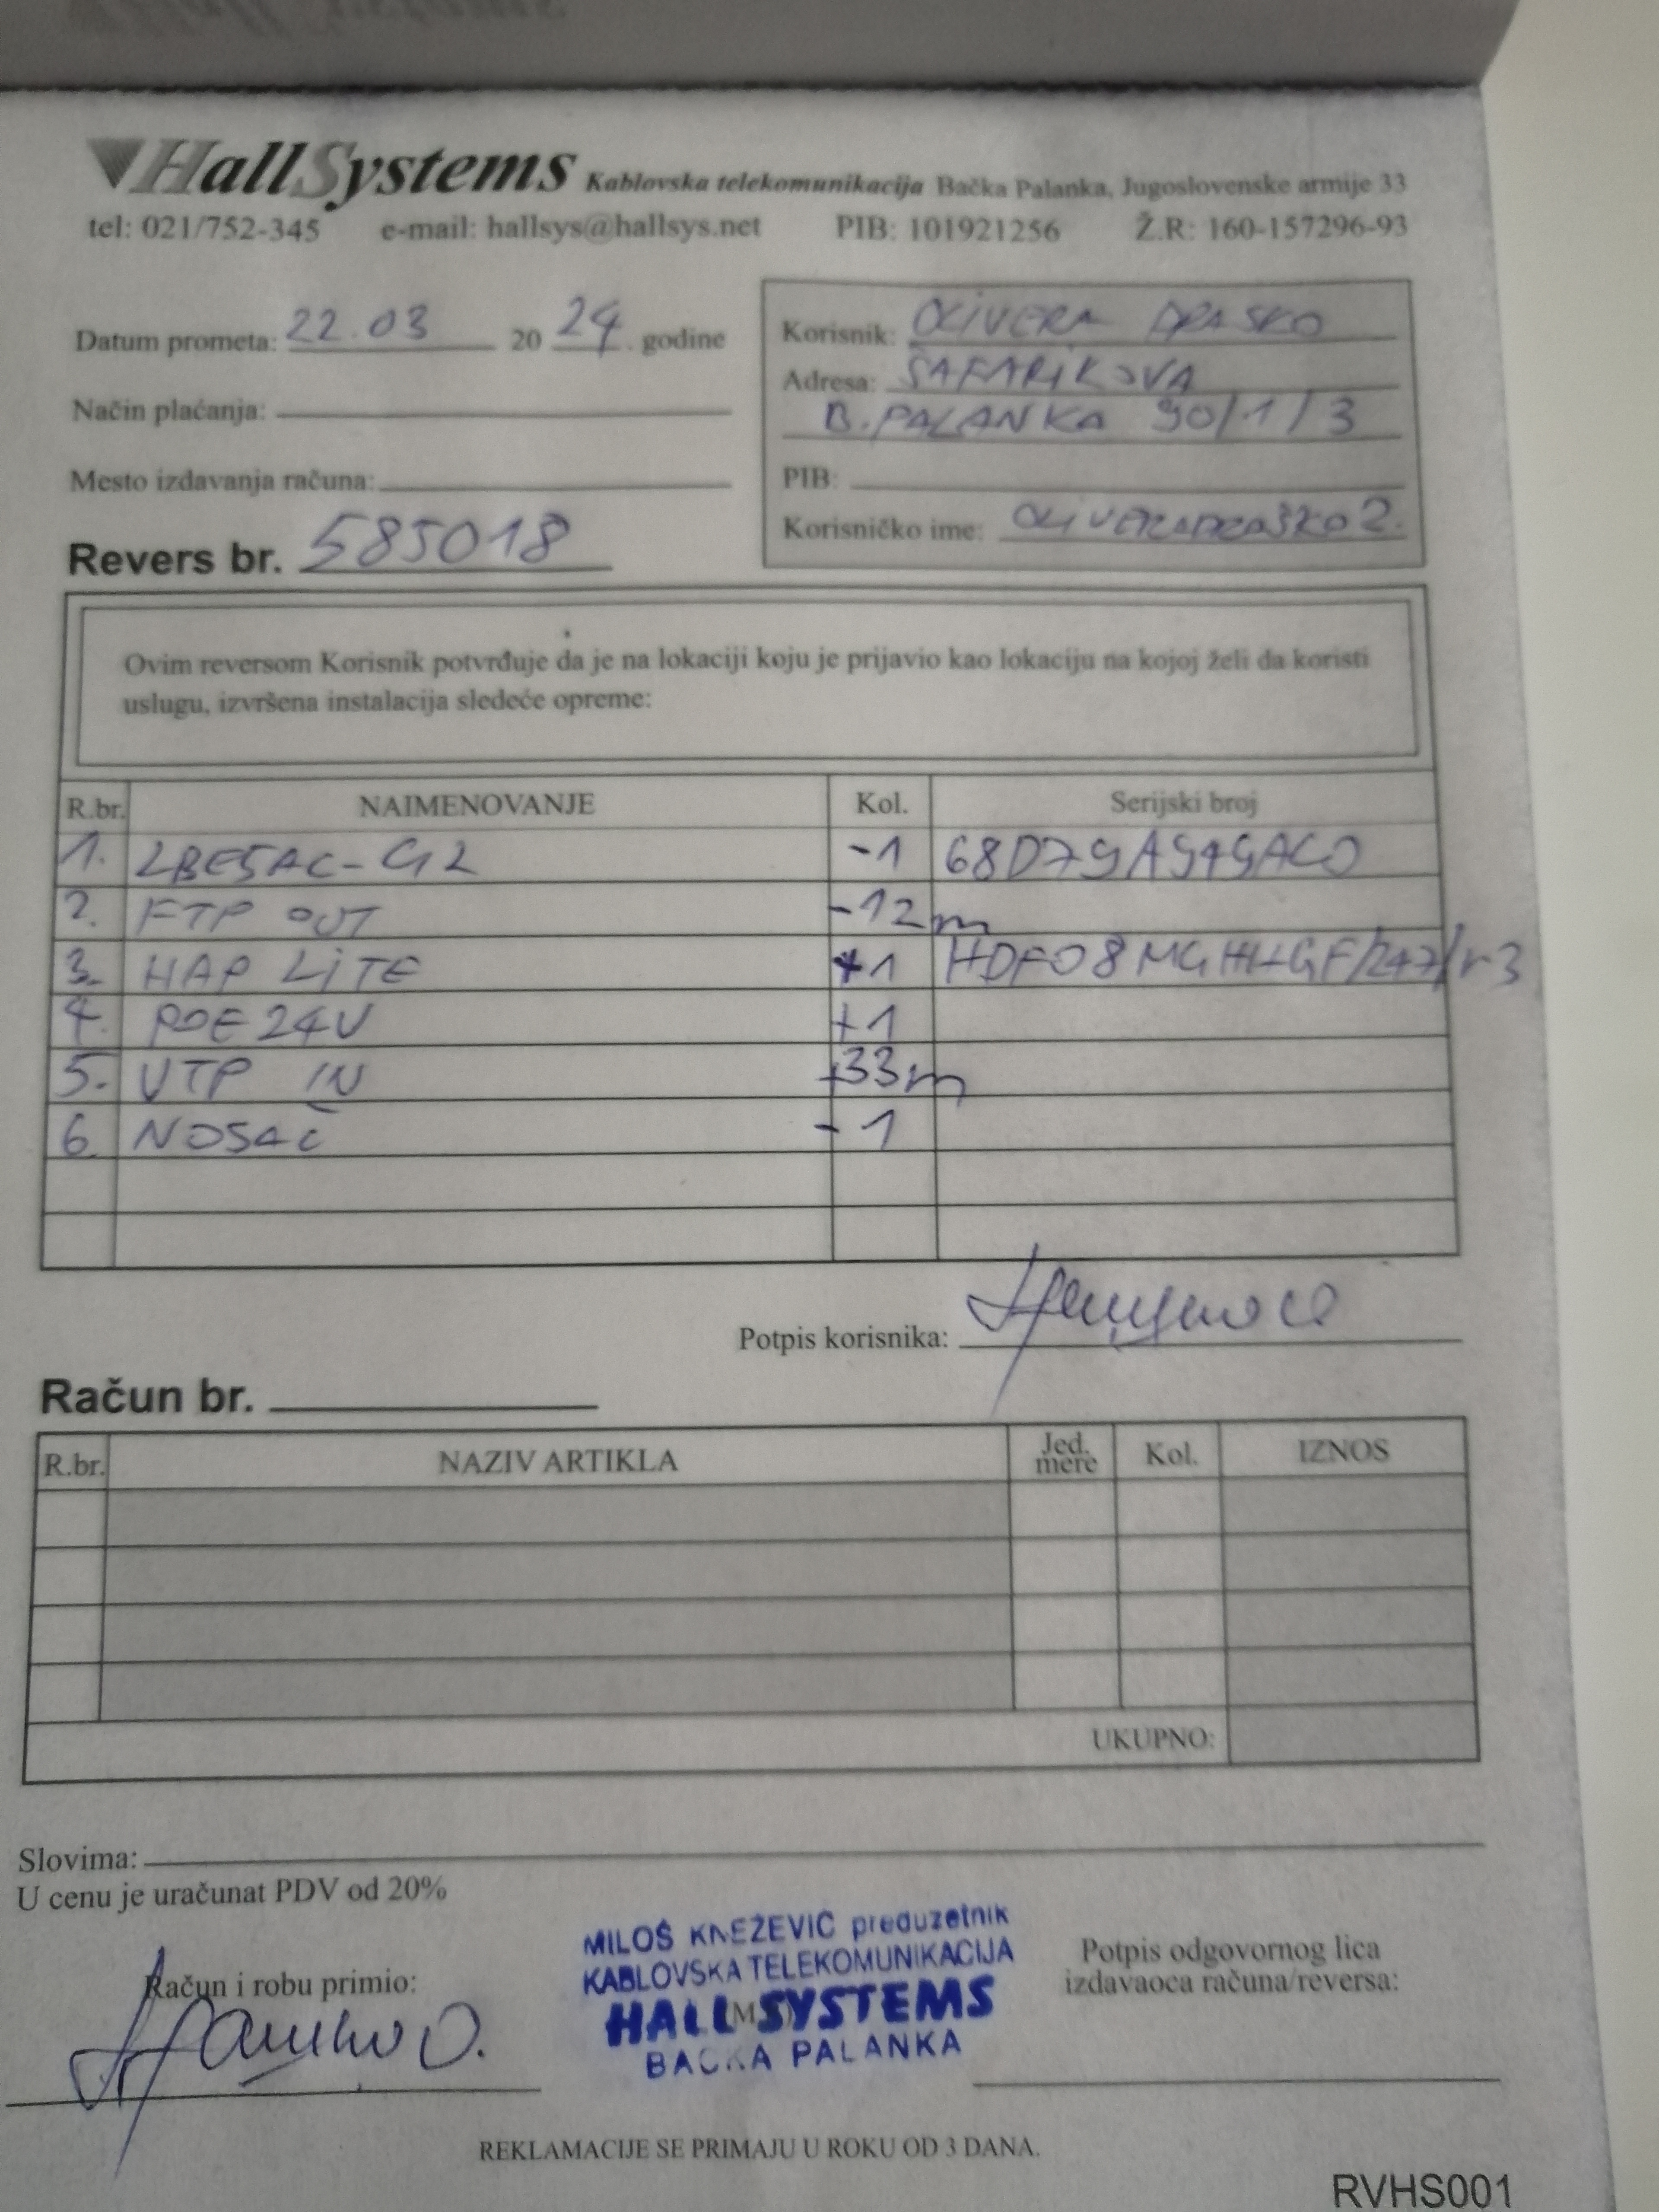 HallSystems Kablovska telekomunikacija Bačka Palanka, Jugoslovenske armije 33
tel: 021/752-345 e-mail: hallsys@hallsys.net PIB: 101921256 Ž.R: 160-157296-93
Datum prometa: 22.03 2024. godine
Način plaćanja:
Mesto izdavanja računa:
Revers br. 585018
Korisnik: OLIVERA DRASKO
Adresa: ŠAFARIKOVA
B.PALANKA 90/1/3
PIB:
Korisničko ime: OLIVERADRAŠKO2.
Ovim reversom Korisnik potvrđuje da je na lokaciji koju je prijavio kao lokaciju na kojoj želi da koristi
uslugu, izvršena instalacija sledeće opreme:
R.br. NAIMENOVANJE Kol. Serijski broj
1. LBE5AC-G2 -1 68D79A949AC0
2. FTP OUT -12m
3. HAP LiTE +1
4. POE 24V +1
5. UTP IN +33m
6. NOSAČ -1
Potpis korisnika:
Račun br.
R.br. NAZIV ARTIKLA Jed. mere Kol. IZNOS
UKUPNO:
Slovima:
U cenu je uračunat PDV od 20%
Račun i robu primio:
MILOŠ KNEŽEVIĆ preduzetnik
KABLOVSKA TELEKOMUNIKACIJA
HALL SYSTEMS
BAČKA PALANKA
Potpis odgovornog lica
izdavaoca računa/reversa:
REKLAMACIJE SE PRIMAJU U ROKU OD 3 DANA.
RVHS001